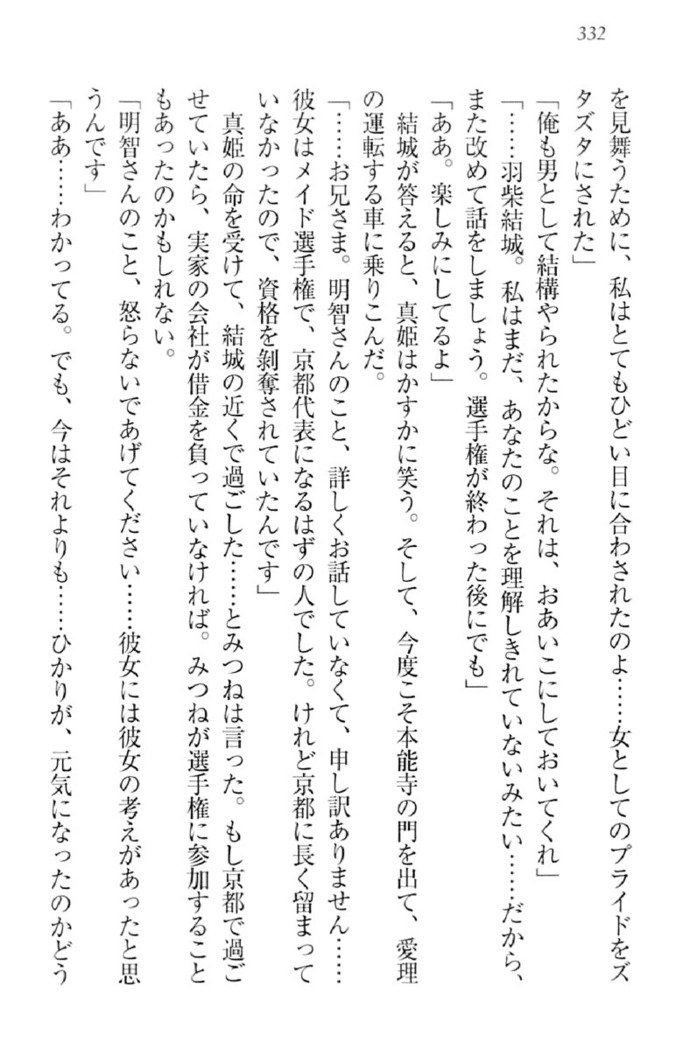 332
を見舞うために、私はとてもひどい目に合わされたのよ……女としてのプライドをズ
タズタにされた」
「俺も男として結構やられたからな。それは、おあいこにしておいてくれ」
「……羽柴結城。私はまだ、あなたのことを理解しきれていないみたい……だから、
また改めて話をしましょう。選手権が終わった後にでも」
「ああ。楽しみにしてるよ」
結城が答えると、真姫はかすかに笑う。そして、今度こそ本能寺の門を出て、愛理
の運転する車に乗りこんだ。
「……お兄さま。明智さんのこと、詳しくお話していなくて、申し訳ありません……
彼女はメイド選手権で、京都代表になるはずの人でした。けれど京都に長く留まって
いなかったので、資格を剥奪されていたんです」
真姫の命を受けて、結城の近くで過ごした……とみつねは言った。もし京都で過ご
せていたら、実家の会社が借金を負っていなければ。みつねが選手権に参加すること
もあったのかもしれない。
「明智さんのこと、怒らないであげてください……彼女には彼女の考えがあったと思
うんです」
「ああ……わかってる。でも、今はそれよりも……ひかりが、元気になったのかどう